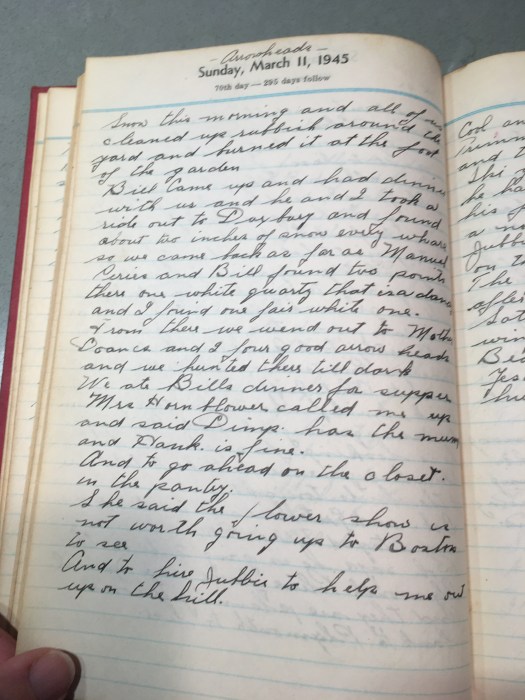 - Arrowheads -
Sunday, March 11, 1945
70th day — 295 days follow
Snow this morning and all of us
cleaned up rubbish around the
yard and burned it at the foot
of the garden
Bill came up and had dinner
with us and he and I took a
ride out to Duxbury and found
about two inches of snow every where
so we came back as far as Manuel
Peries and Bill found two points
there one white quartz that is a dandy
and I found one fair white one.
From there we wend out to
Loancs and I four good arrow heads
and we hunted there till dark
We ate Bills dinner for supper
Mrs Hornblower called me up
and said Dimp. has the mumps
and Hank. is fine.
And to go ahead on the closet.
in the pantry.
She said the flower show is
not worth going up to Boston
to see
And to hire Jubbie to help me out
up on the hill.
Cool
and t
he ha
his
a n
Jubb
on t
The
after
Sat
win
Be